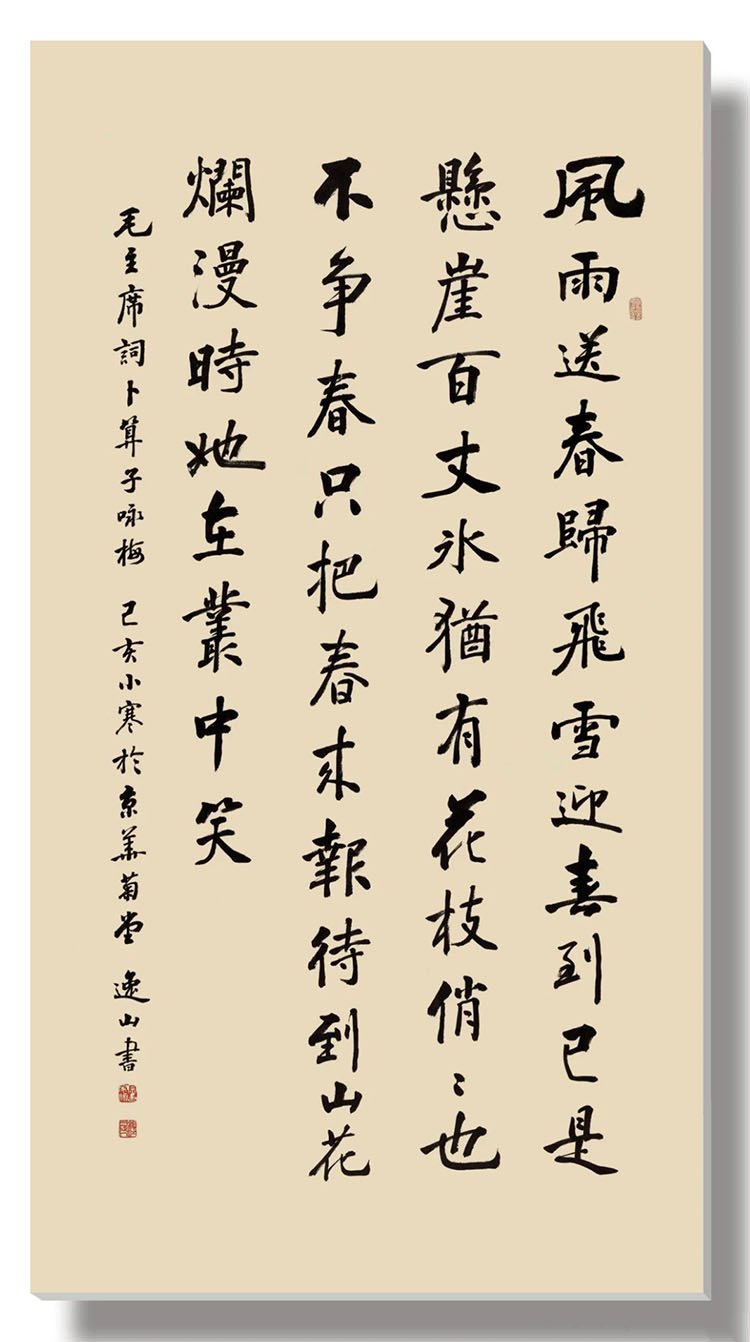 風雨送春歸飛雪迎春到已是
懸崖百丈氷猶有花枝俏〻也
不争春只把春來報待到山花
爛漫時她在叢中笑
毛主席詞卜算子咏梅 己亥小寒於京華菊堂 逸山書